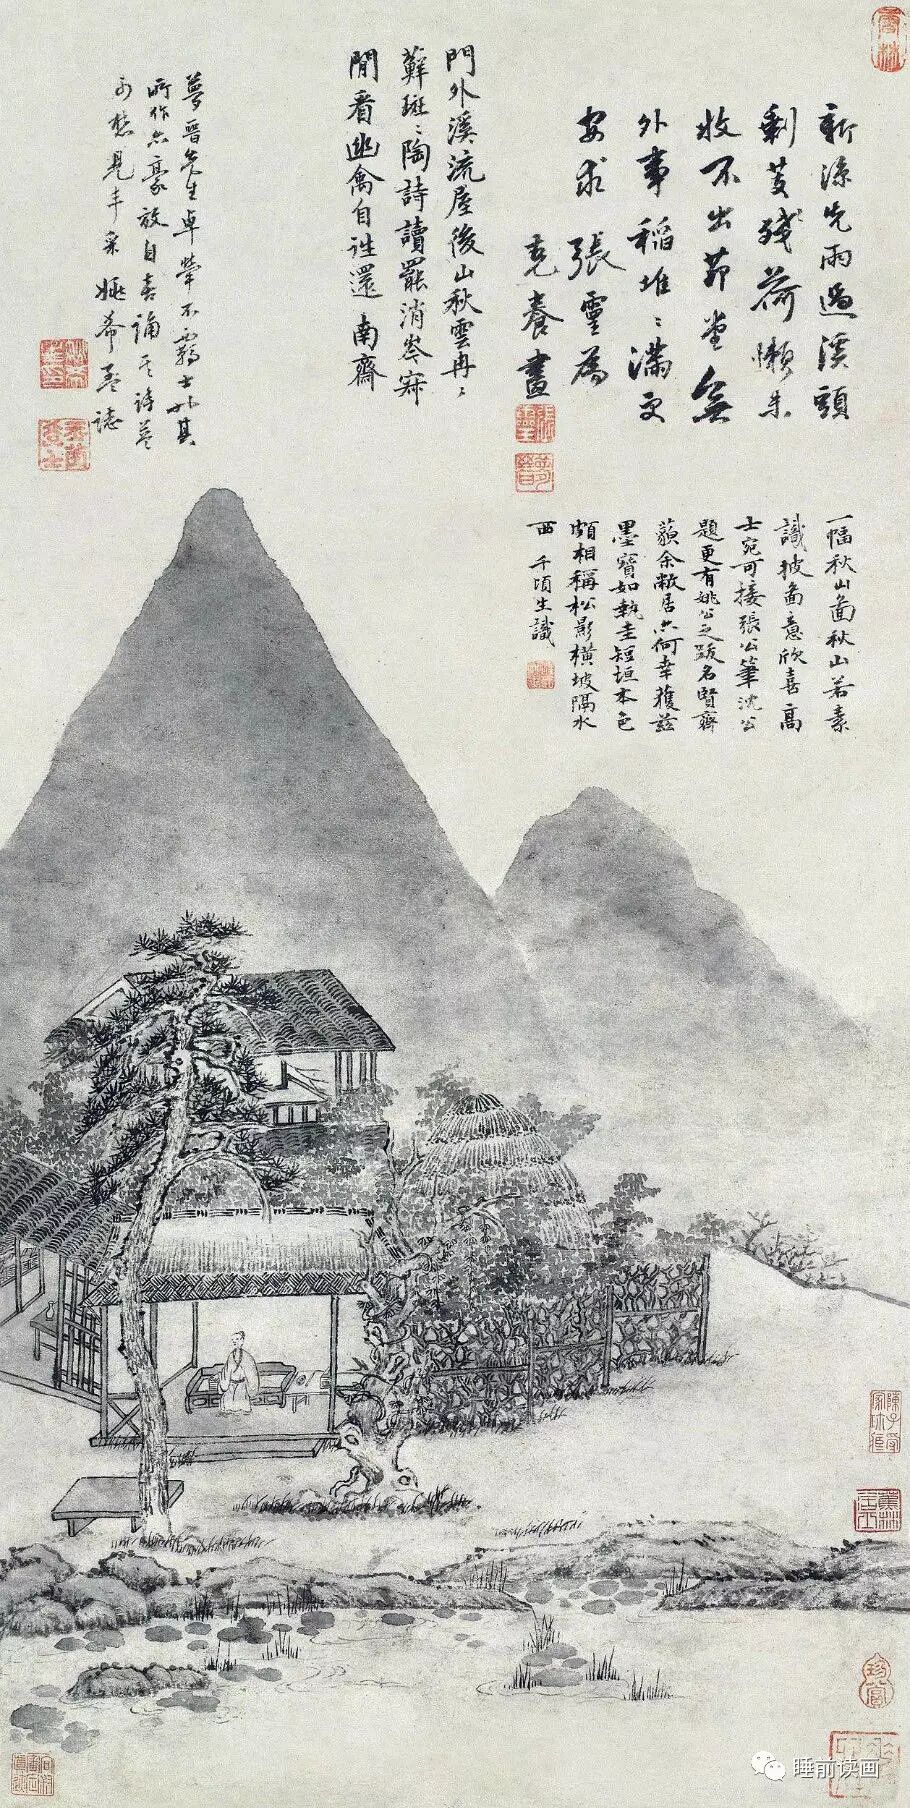 新涼先雨過溪頭
剩芰殘荷懶未
收不出茆堂無
外事稻堆〻滿更
安求 張靈為
堯養畫
門外溪流屋後山秋雲冉〻
蘚斑〻陶詩讀罷消岑寂
閒看幽禽自往還 南齋
夢晉先生卓犖不羈士也其
所作亦豪放自喜誦其詩並
可想見丰采 姚希孟誌
一幅秋山啚秋山若素
識披啚意欣喜高
士宛可接張公筆沈公
題更有姚公之跋名賢齊
余敝居亦何幸獲茲
墨寶如執圭短垣本色
頗相稱松影橫坡隔水
西 千頃生識
珍賞
睡前读画